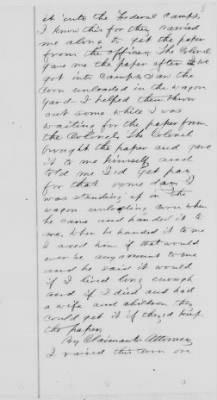 it into the Federal Camps,
I know this for they carried
me along to get the paper
from the officers, The Colonel
gave me the paper after we
got into Camps. I saw the
corn unloaded in the wagon
yard. I helped them throw
out some while I was
waiting for the paper from
the Colonel. The Colonel
brought the paper and gave
it to me himself and
told me I'd get pay
for that some day. I
was standing up in the
wagon unloading corn when
he came and handed it to
me. When he handed it to me
I asked him if that would
ever be any account to me
and he said it would
if I lived long enough
and if I died and had
a wife and children they
could get it if they'd keep
the paper.
By Claimants Attorney
I raised this corn on